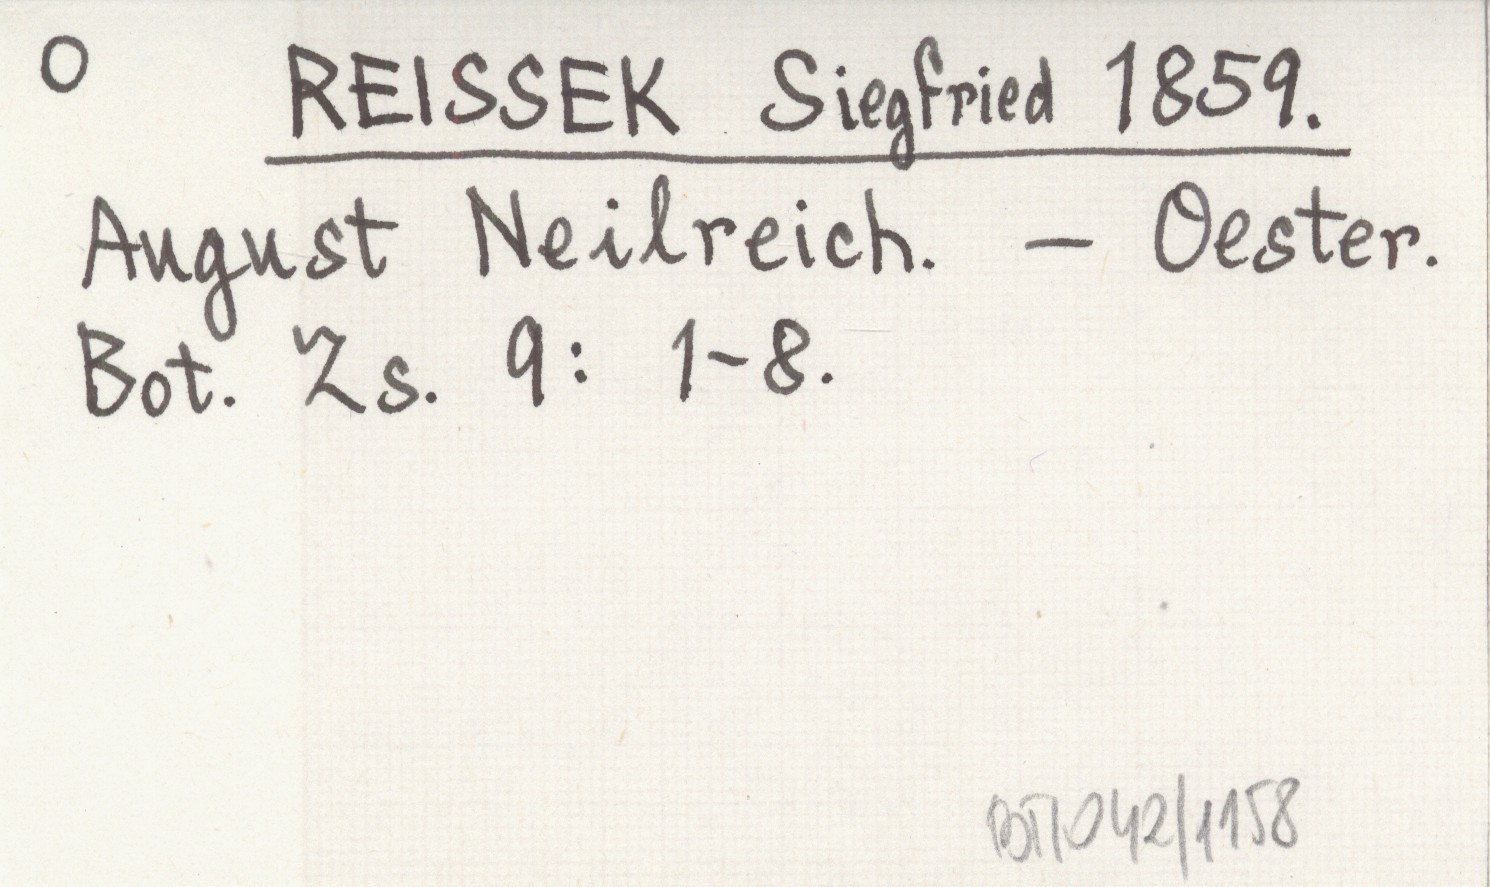 O REISSEK Siegfried 1859.
August Neilreich. – Oester.
Bot. Zs. 9: 1-8.
BOT/042/1158